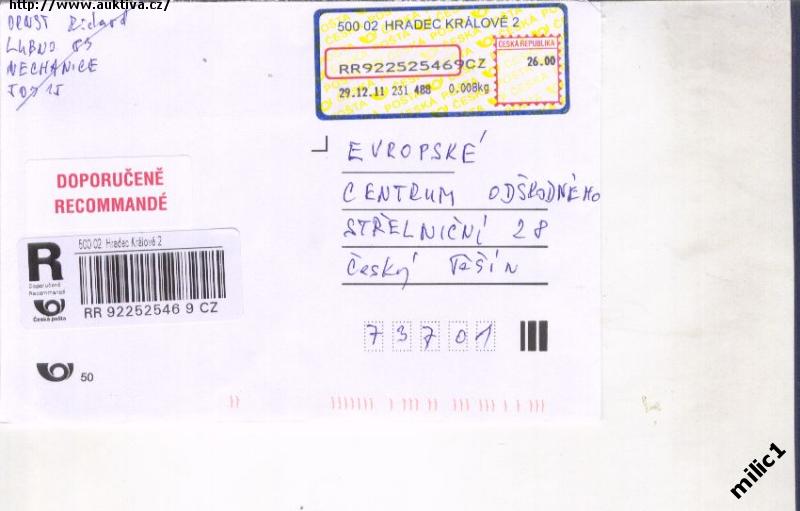 http://www.auktiva.cz/
ERNST Richard
LUBNO 83
NECHANICE
503 15
500 02 HRADEC KRÁLOVÉ 2
ČESKÁ REPUBLIKA
26.00
RR922525469CZ
29.12.11 231 488 0.008kg
EVROPSKÉ
CENTRUM ODŠKODNÉHO
STŘELNIČNÍ 28
ČESKÝ TĚŠÍN
73701
DOPORUČENĚ
RECOMMANDÉ
500 02 Hradec Králové 2
R
Doporučeně
Recommandé
Česká pošta
RR 92252546 9 CZ
50
milic1